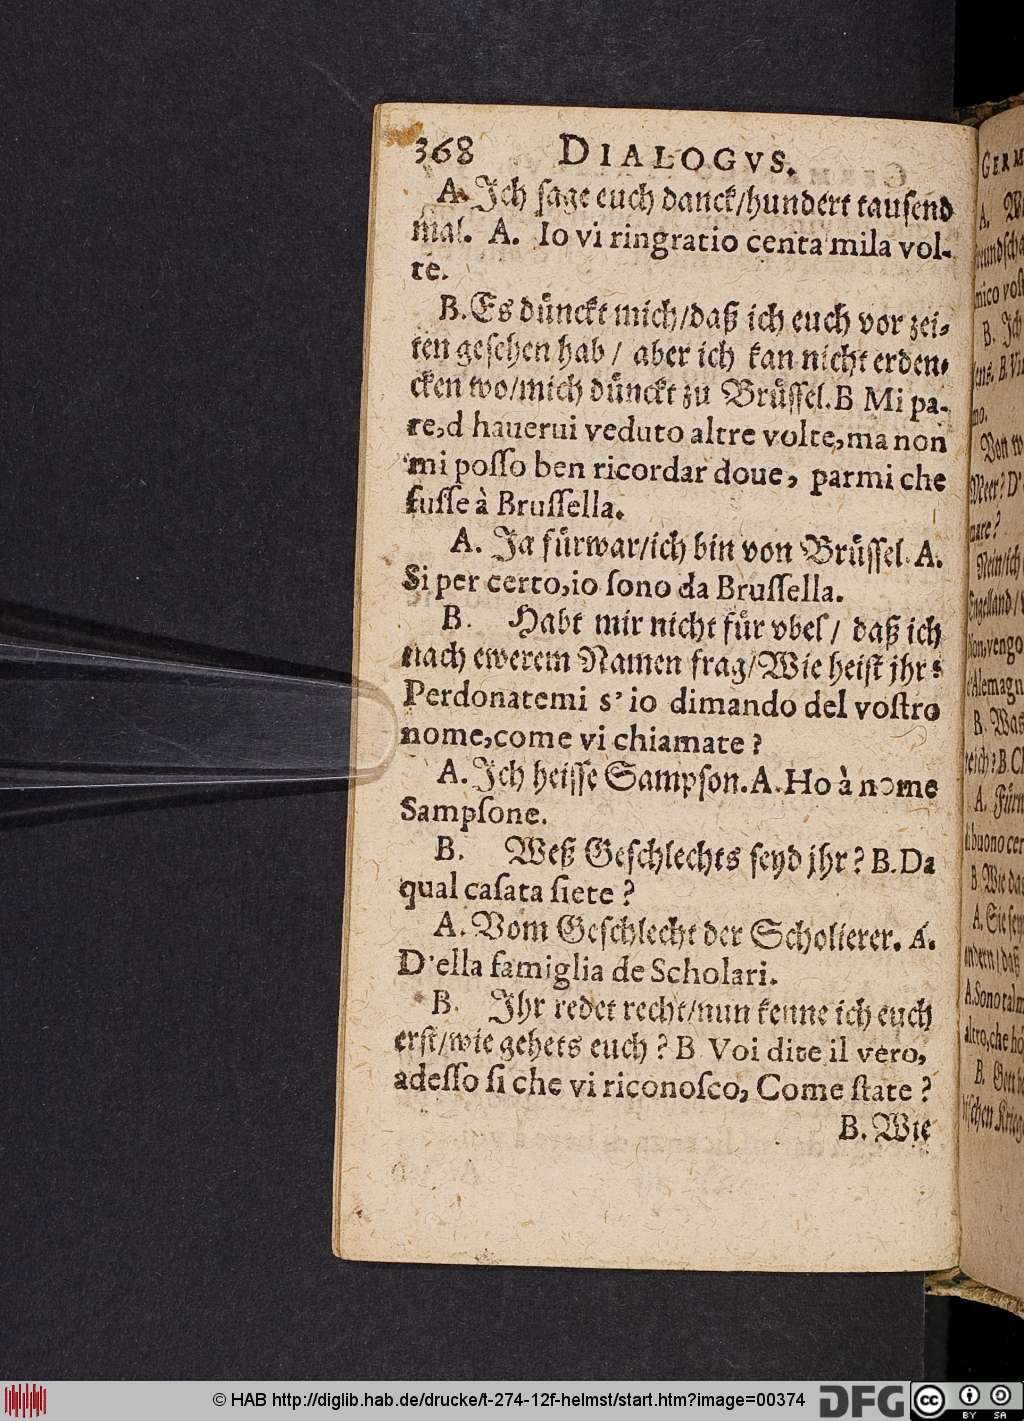 368 DIALOGVS.
A. Ich ſage euch danck/hundert tauſend
mal. A. Io vi ringratio centa mila vol-
te.
B. Es dünckt mich/daß ich euch vor zei-
ten geſehen hab / aber ich kan nicht erden-
cken wo/mich dünckt zu Brüſſel. B Mi pa-
re,d haueruí veduto altre volte,ma non
mi poſſo ben ricordar doue, parmi che
fuſſe à Bruſſella.
A. Ja fürwar/ich bin von Brüſſel. A.
Si per certo,io ſono da Bruſſella.
B. Habt mir nicht für vbel / daß ich
nach ewerem Namen frag/Wie heiſt jhr?
Perdonatemi s'io dimando del voſtro
nome,come vi chiamate ?
A. Ich heiſſe Sampſon. A. Ho à nome
Sampſone.
B. Weß Geſchlechts ſeyd jhr ? B. Da
qual caſata ſiete ?
A. Vom Geſchlecht der Scholierer. A.
D'ella famiglia de Scholari.
B. Ihr redet recht/nun kenne ich euch
erſt/wie gehets euch ? B Voi dite il vero,
adeſſo ſi che vi riconoſco, Come ſtate ?
B. Wie
GERM
A. 
B. Ich
B. Vi
mo.
Von
Meer? D'
mare?
Nein/ich
Engelland/
Non,vengo
d'Alemagn
B. Was
reich? B. Ch
A. Fürn
buono cer
B. Wie
A. Sie ſey
andern/daß
A. Sono
altro,che
B. Gott
© HAB http://diglib.hab.de/drucke/t-274-12f-helmst/start.htm?image=00374
DFG
cc BY SA